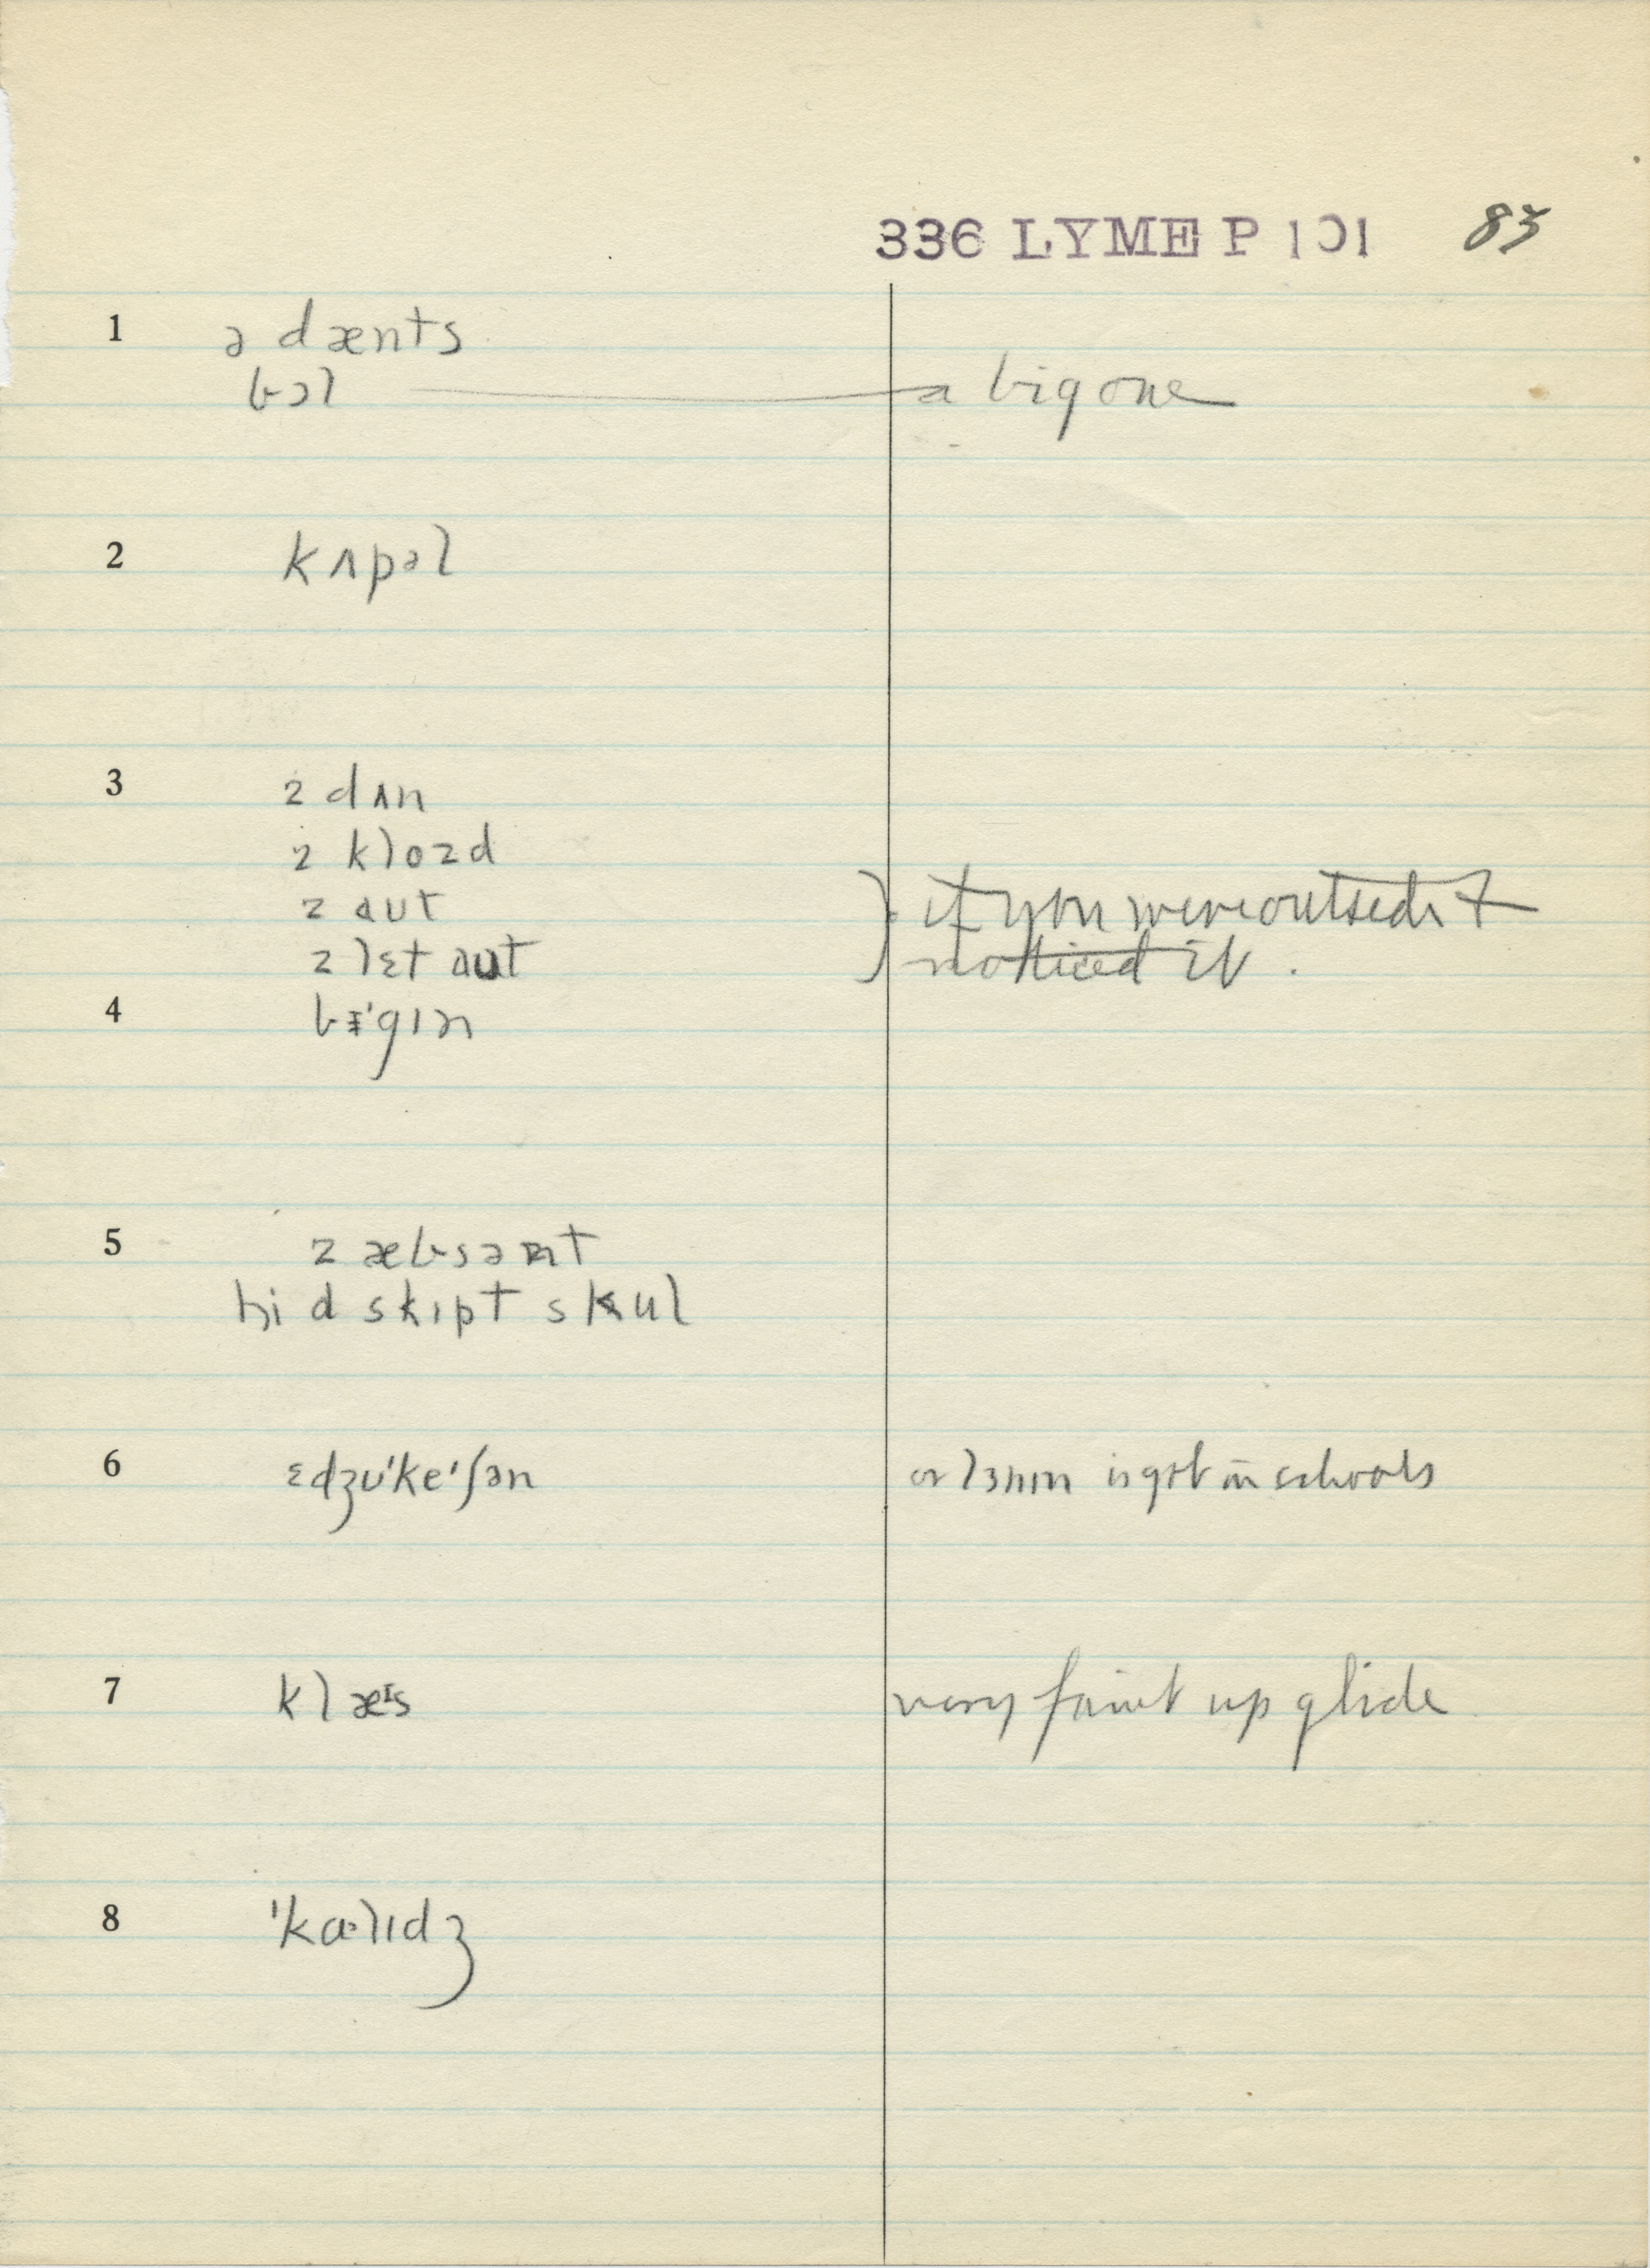 336 LYME P 101 83
1 ə dænts
bɔl a big one
2 kʌpəl
3 z dʌn
z klozd
z aut
z lɛt aut
} if you were outside & noticed it.
4 bɪ'gɪn
5 z æbsənt
hi d skɪpt skul
6 ɛdʒʊ'ke'ʃən or lɜnɪn is got in schools
7 klæɪs very faint up glide
8 'kɑ·lɪdʒ